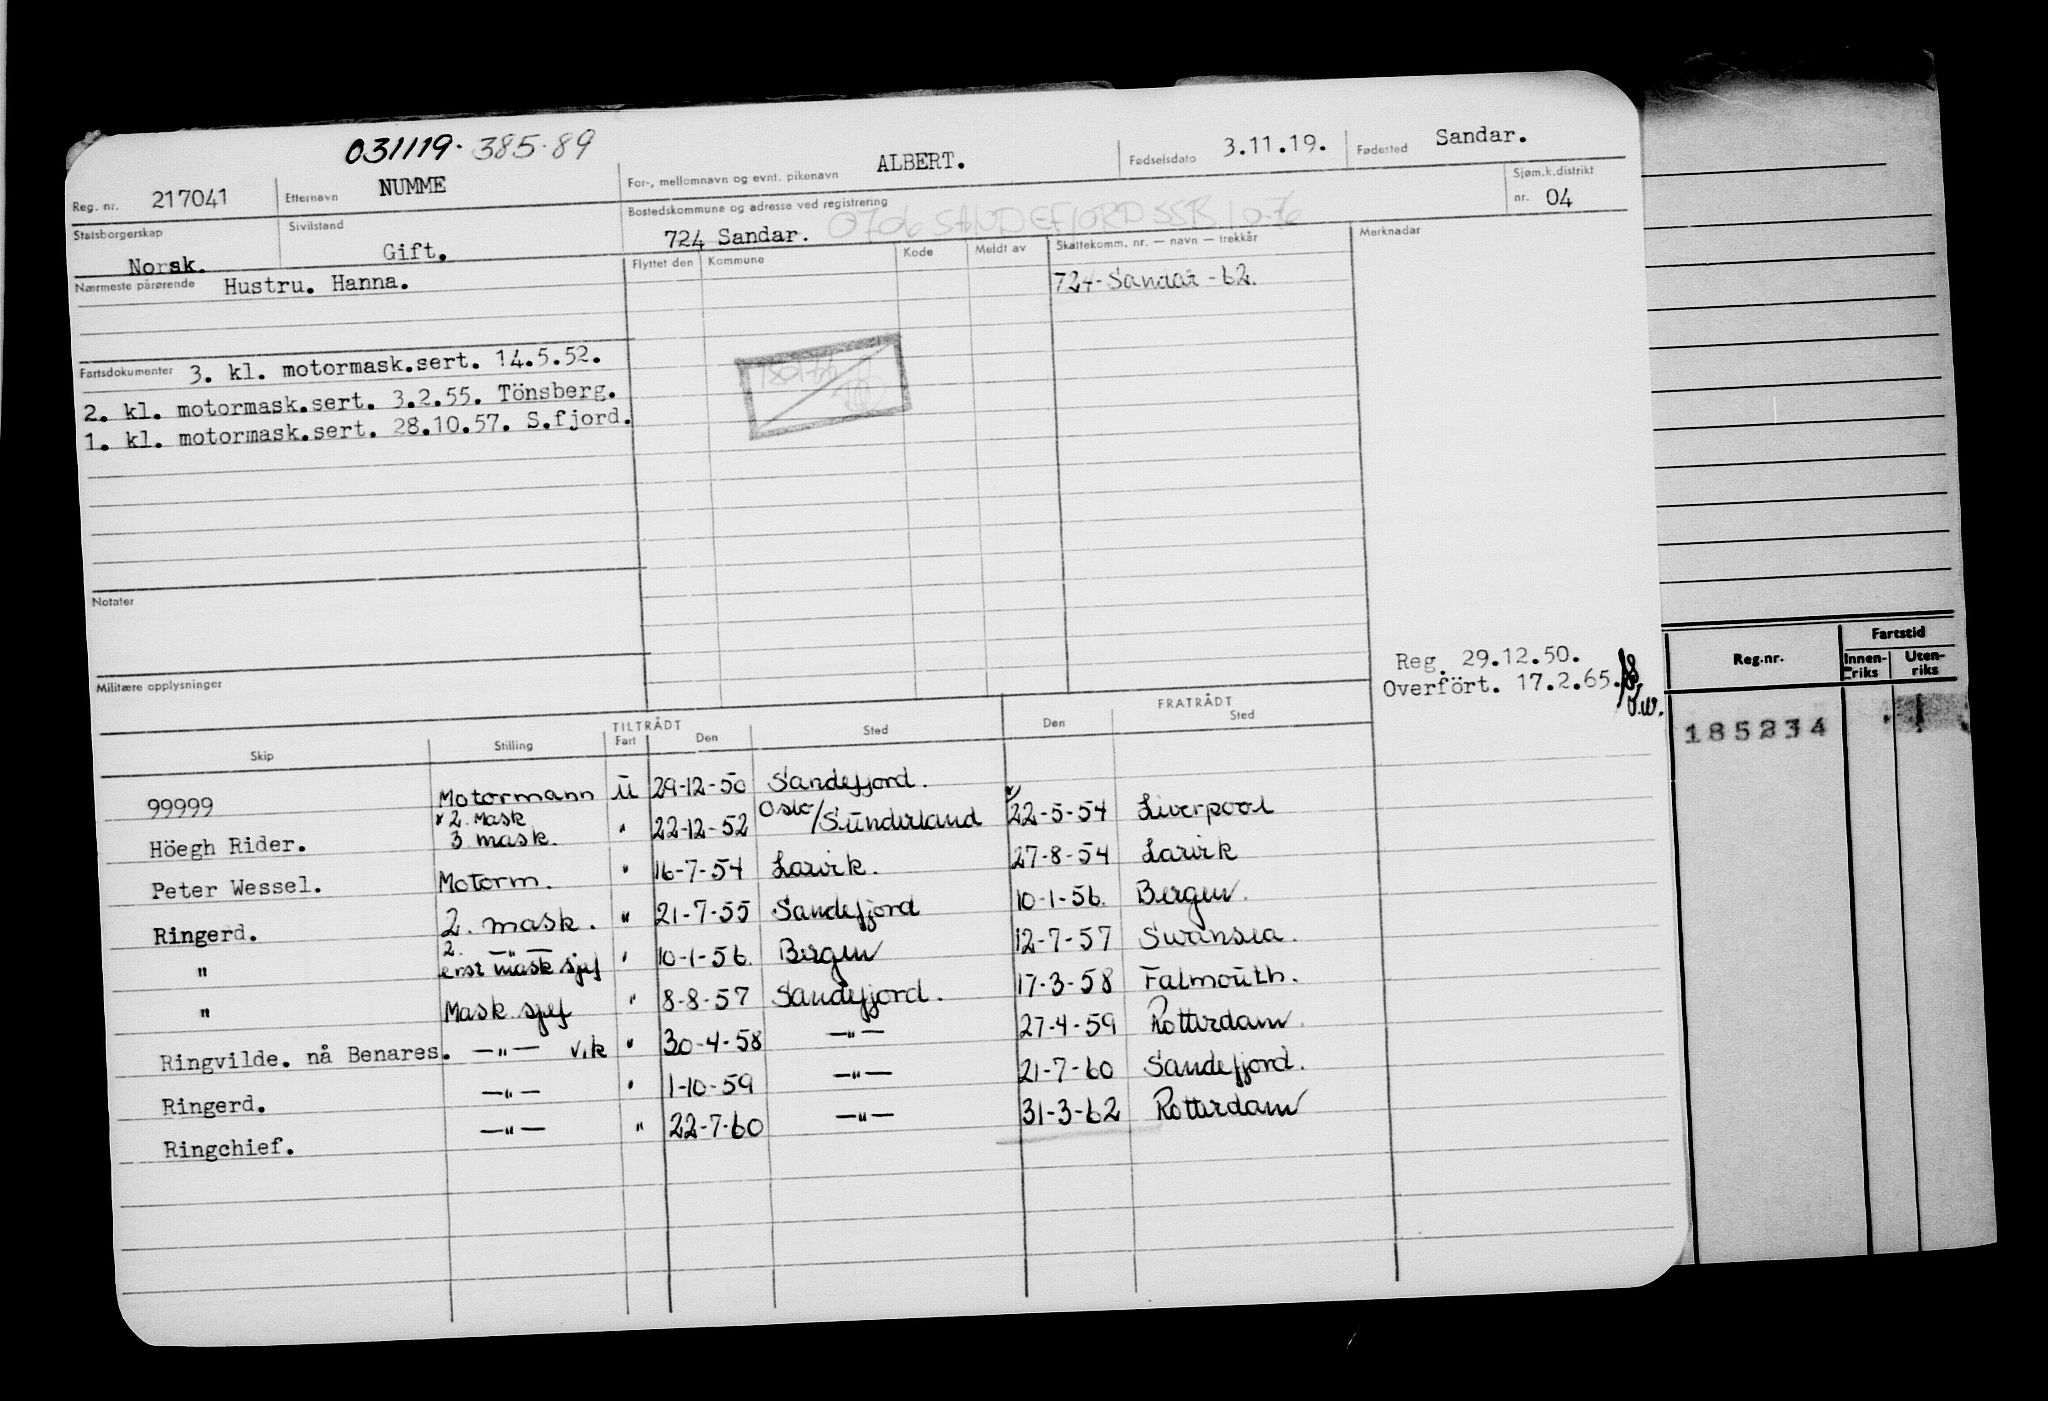 031119. 385.89
Reg. nr. 217041 Etternavn NUMME For-, mellomnavn og evnt. pikenavn ALBERT. Fødselsdato 3.11.19. Fødested Sandar.
Statsborgerskap Norsk. Sivilstand Gift. Bostedskommune og adresse ved registrering 724 Sandar. 0706 SANDEFJORD SSB Sjøm.k.distrikt nr. 04
Nærmeste pårørende Hustru. Hanna. Flyttet den Kommune Kode Meldt av Skattekomm. nr. — navn — trekkår Merknadar
724-Sandar-62.
Fartsdokumenter 3. kl. motormask.sert. 14.5.52.
2. kl. motormask.sert. 3.2.55. Tönsberg.
1. kl. motormask.sert. 28.10.57. S.fjord.
Notater
Militære opplysninger
Reg. 29.12.50.
Overfört. 17.2.65.
TILTRÅDT FRATRÅDT
Skip Stilling Fart Den Sted Den Sted
99999 Motormann U 29-12-50 Sandefjord.
2. Mask
Höegh Rider. 3 mask. " 22-12-52 Oslo/Sunderland 22-5-54 Liverpool
Peter Wessel. Motorm. " 16-7-54 Larvik. 27-8-54 Larvik
Ringerd. 2. mask. " 21-7-55 Sandefjord 10-1-56. Bergen.
2. —"—
" erst mask sjef " 10-1-56. Bergen 12-7-57 Swansea.
" Mask sjef " 8-8-57 Sandefjord. 17-3-58 Falmouth.
Ringvilde. nå Benares. —"— vik " 30-4-58 —"— 27-4-59 Rotterdam.
Ringerd. —"— " 1-10-59 —"— 21-7-60 Sandefjord.
Ringchief. —"— " 22-7-60 —"— 31-3-62 Rotterdam
Reg.nr. Fartstid
Innenriks Utenriks
185234